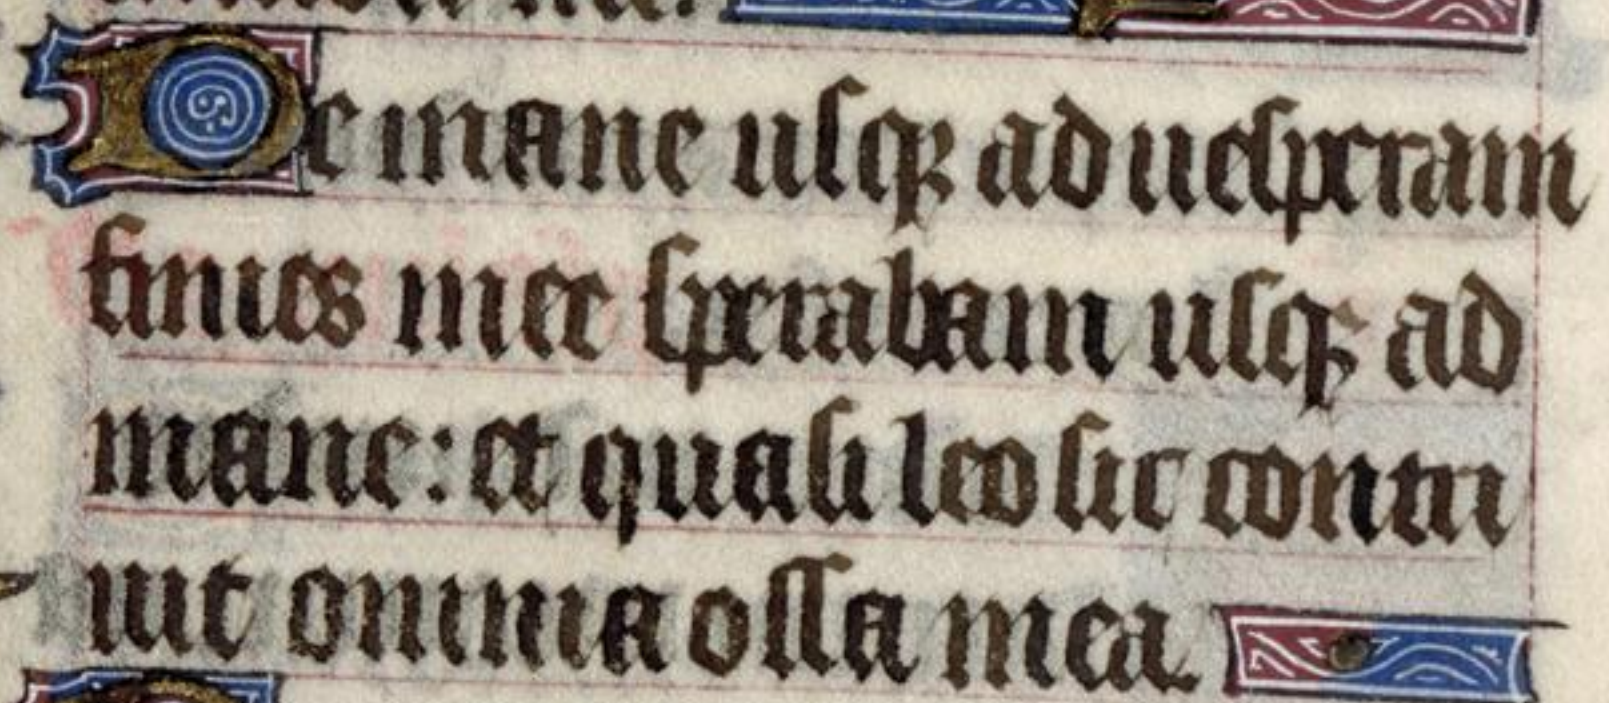 De mane usqꝫ ad uesperam
finies mee sperabam usqꝫ ad
mane: et quasi leo sic contri
uit omnia ossa mea.